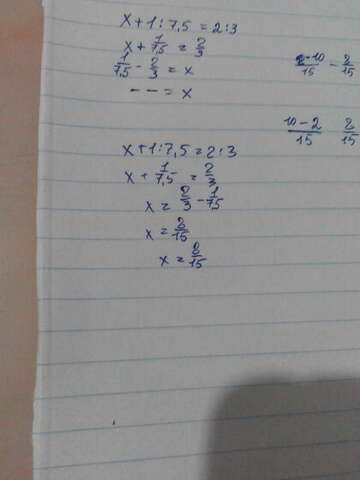 x + 1 : 7,5 = 2 : 3
x + 1/7,5 = 2/3
1/7,5 - 2/3 = x
- - = x
2-10/15 - 8/15
10-2/15 8/15
x + 1 : 7,5 = 2 : 3
x + 1/7,5 = 2/3
x = 2/3 - 1/7,5
x = 8/15
x = 8/15